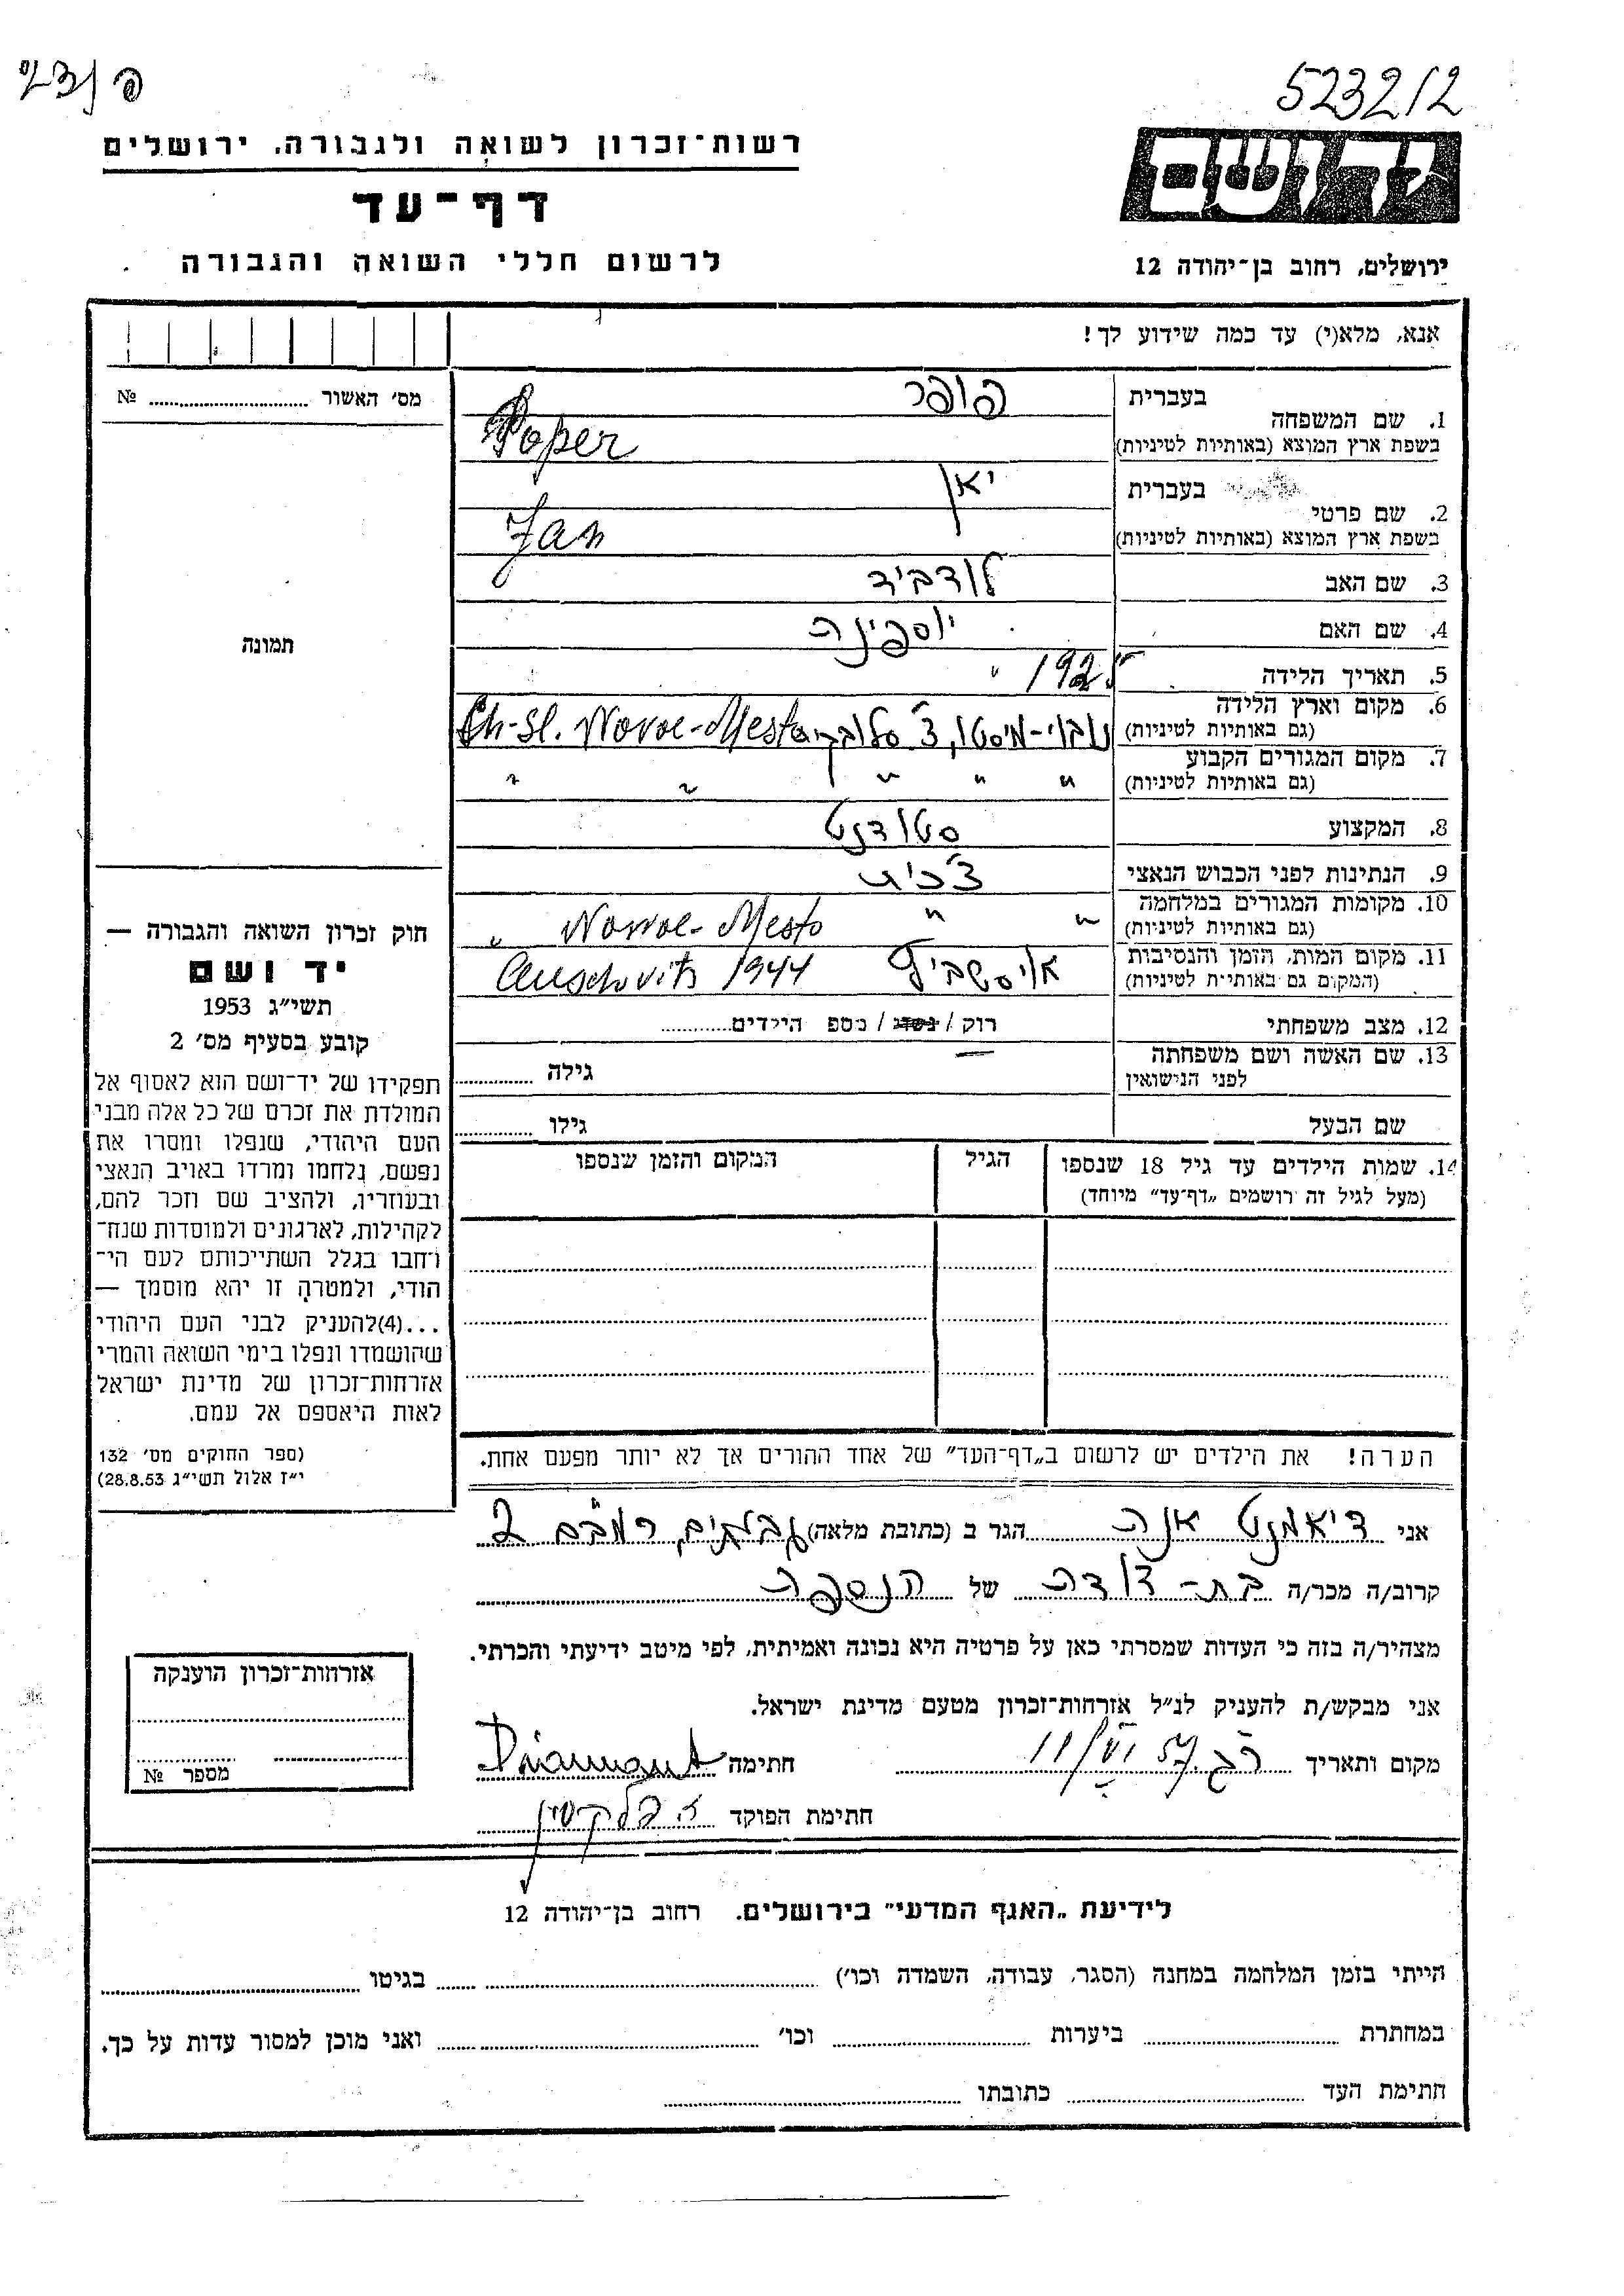 5232/2
יד ושם
רשות-זכרון לשואה ולגבורה, ירושלים
דף-עד
לרשום חללי השואה והגבורה
ירושלים, רחוב בן-יהודה 12
אנא, מלא(י) עד כמה שידוע לך!
מס' האשור № 
תמונה
1. שם המשפחה
בעברית פופר
בשפת ארץ המוצא (באותיות לטיניות) Poper
2. שם פרטי
בעברית יאן
בשפת ארץ המוצא (באותיות לטיניות) Jan
3. שם האב לודביד
4. שם האם יוספינה
5. תאריך הלידה 1925
6. מקום וארץ הלידה
(גם באותיות לטיניות) נובוי-מיסטו, צ'סלובקיה Ch-Sl. Novoe-Mesto
7. מקום המגורים הקבוע
(גם באותיות לטיניות) " " " " "
8. המקצוע סטודנט
9. הנתינות לפני הכבוש הנאצי צ'כית
10. מקומות המגורים במלחמה
(גם באותיות לטיניות) " " Novoe-Mesto "
11. מקום המות, הזמן והנסיבות
(המקום גם באותיות לטיניות) אוישביץ Auschovits 1944
12. מצב משפחתי רוק / נשוי / מספ הילדים
13. שם האשה ושם משפחתה
לפני הנישואין — גילה
שם הבעל גילו
14. שמות הילדים עד גיל 18 שנספו
(מעל לגיל זה רושמים "דף-עד" מיוחד)
הגיל
המקום והזמן שנספו
הערה! את הילדים יש לרשום ב"דף-העד" של אחד ההורים אך לא יותר מפעם אחת.
חוק זכרון השואה והגבורה —
יד ושם
תשי"ג 1953
קובע בסעיף מס' 2
תפקידו של יד-ושם הוא לאסוף אל
המולדת את זכרם של כל אלה מבני
העם היהודי, שנפלו ומסרו את
נפשם, נלחמו ומרדו באויב הנאצי
ובעוזריו, ולהציב שם וזכר להם,
לקהילות, לארגונים ולמוסדות שנח-
רחבו בגלל השתייכותם לעם הי-
הודי, ולמטרה זו יהא מוסמך —
...(4)להעניק לבני העם היהודי
שהושמדו ונפלו בימי השואה והמרי
אזרחות-זכרון של מדינת ישראל
לאות היאספם אל עמם.
(ספר החוקים מס' 132
י"ז אלול תשי"ג 28.8.53)
אני דיאמנט אנה הגר ב (כתובת מלאה) גבעתיים, רמב"ם 2
קרוב/ה מכר/ה בת-דודה של הנספה
מצהיר/ה בזה כי העדות שמסרתי כאן על פרטיה היא נכונה ואמיתית, לפי מיטב ידיעתי והכרתי.
אני מבקש/ת להעניק לנ"ל אזרחות-זכרון מטעם מדינת ישראל.
מקום ותאריך חתימה Diamant
חתימת הפוקד
אזרחות-זכרון הוענקה
מספר №
לידיעת "האגף המדעי" בירושלים. רחוב בן-יהודה 12
הייתי בזמן המלחמה במחנה (הסגר, עבודה, השמדה וכו') בגיטו
במחתרת ביערות וכו' ואני מוכן למסור עדות על כך.
חתימת העד כתובתו